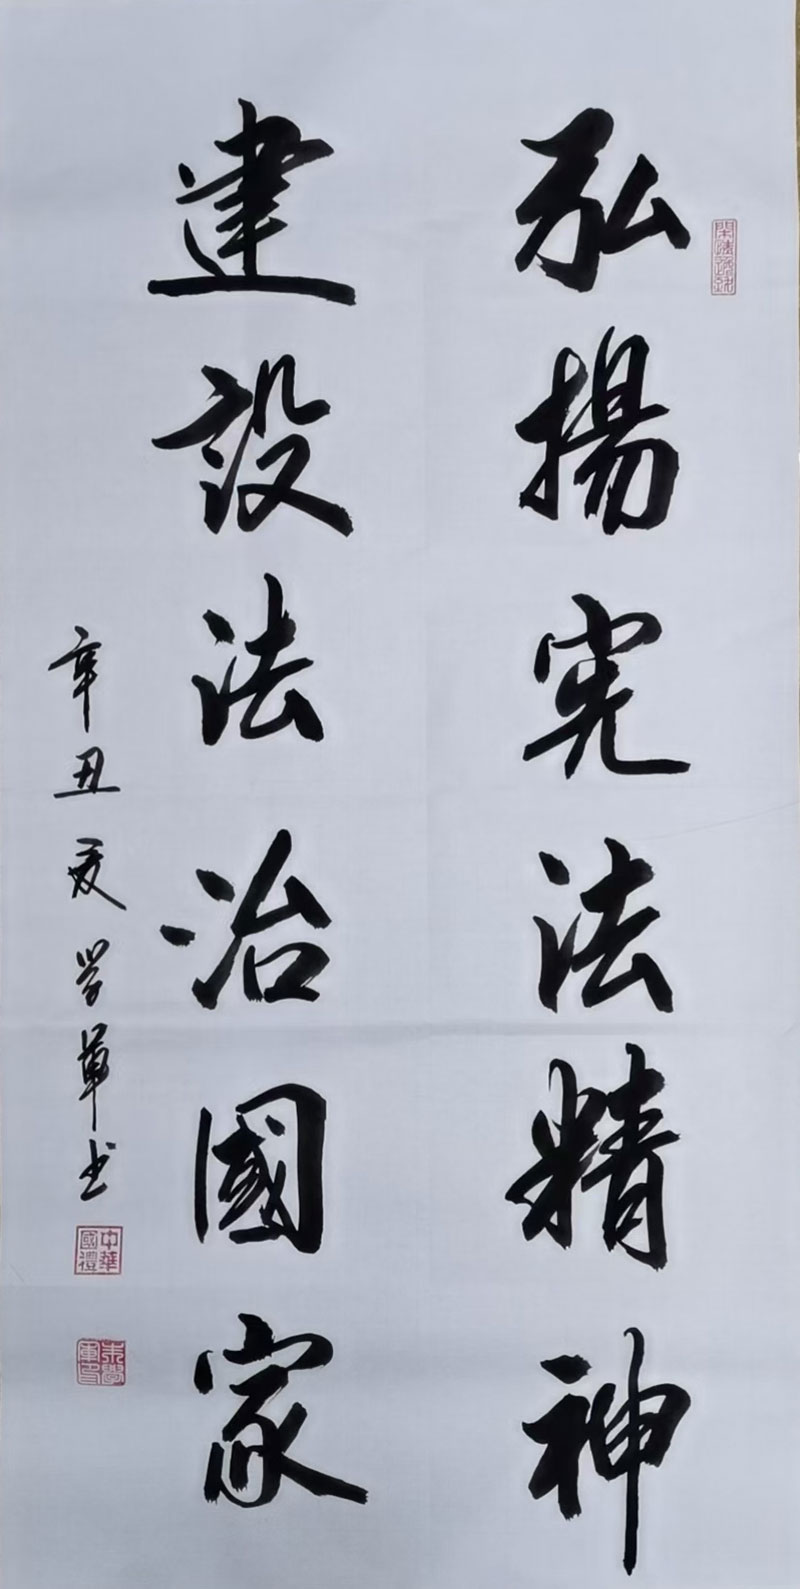 弘揚憲法精神
建設法治國家
辛丑夏学军书
中華國禮